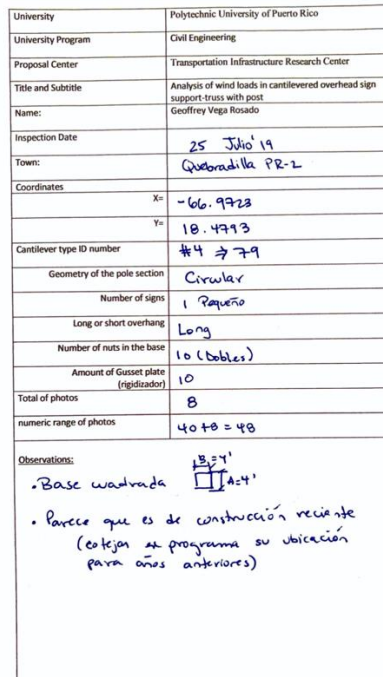 University Polytechnic University of Puerto Rico
University Program Civil Engineering
Proposal Center Transportation Infrastructure Research Center
Title and Subtitle Analysis of wind loads in cantilevered overhead sign
support-truss with post
Name: Geoffrey Vega Rosado
Inspection Date 25 Julio'19
Town: Quebradilla PR-2
Coordinates
X= -66.9723
Y= 18.4793
Cantilever type ID number #4 ⇒ 79
Geometry of the pole section Circular
Number of signs 1 Pequeño
Long or short overhang Long
Number of nuts in the base 10 (Dobles)
Amount of Gusset plate
(rigidizador) 10
Total of photos 8
numeric range of photos 40+8 = 48
Observations:
B=4'
• Base cuadrada A=4'
• Parece que es de construcción reciente
(cotejar programa su ubicación
para años anteriores)